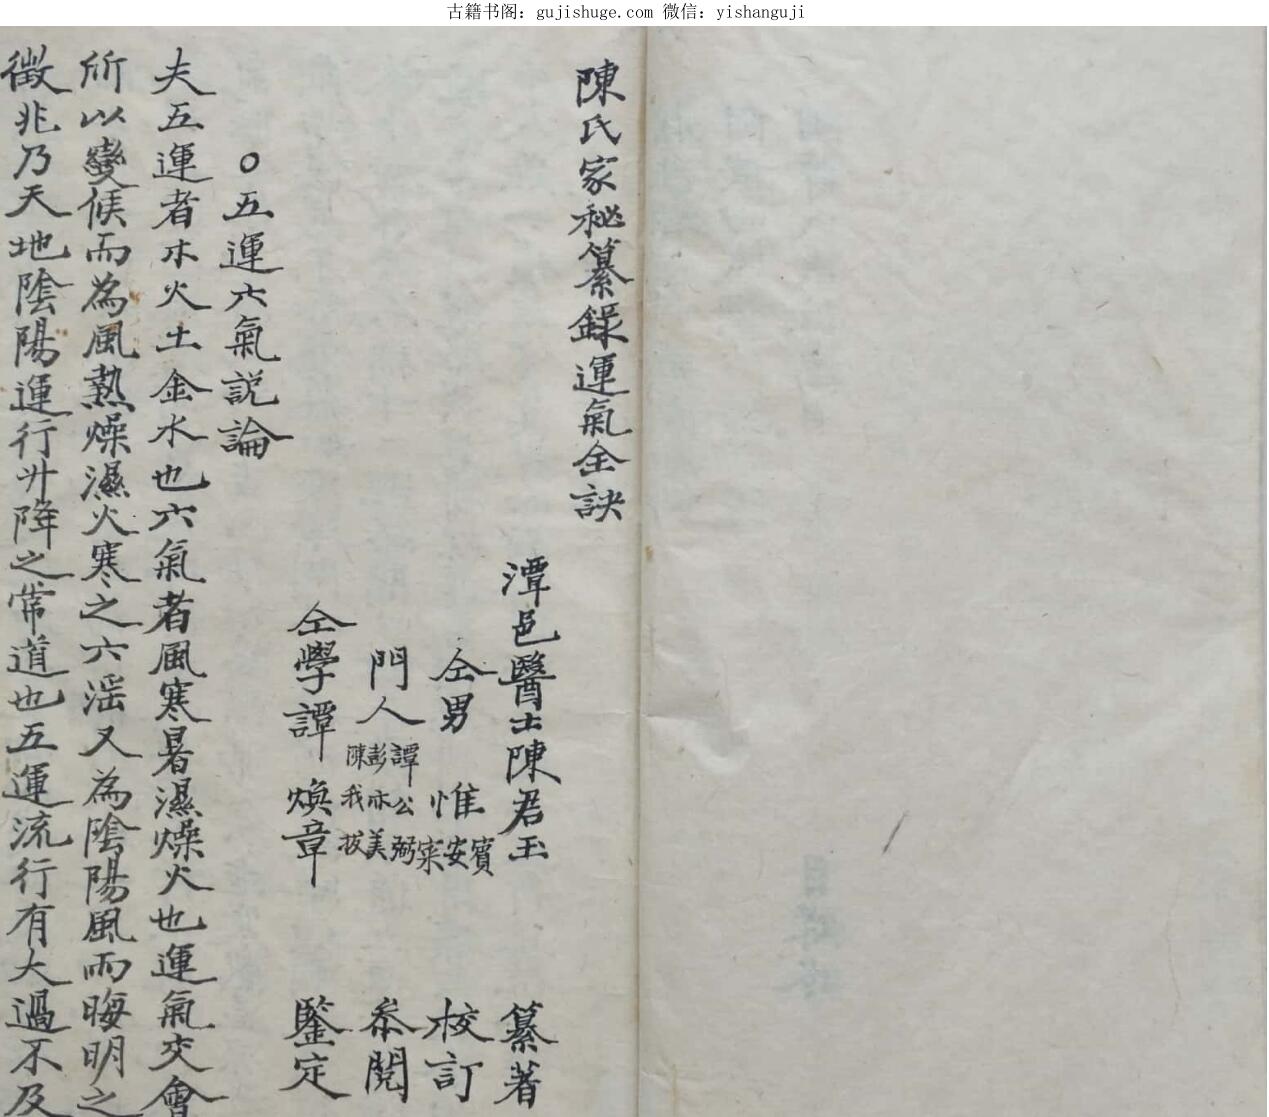 古籍书阁：gujishuge.com 微信：yishanguji
陳氏家秘纂錄運氣全訣
潭邑醫士陳君玉 纂著
仝男 惟賓安寀 校訂
門人 譚公弼 彭亦美 陳我拔 叅閱
仝學譚煥章 鑒定
○五運六氣説論
夫五運者木火土金水也六氣者風寒暑濕燥火也運氣交會
所以變候而為風熱燥濕火寒之六淫又為陰陽風雨晦明之
徵兆乃天地陰陽運行廾降之常道也五運流行有大過不及